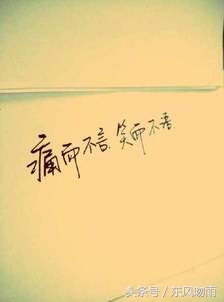 痛而不言,笑而不语
头条号 / 东风吻雨